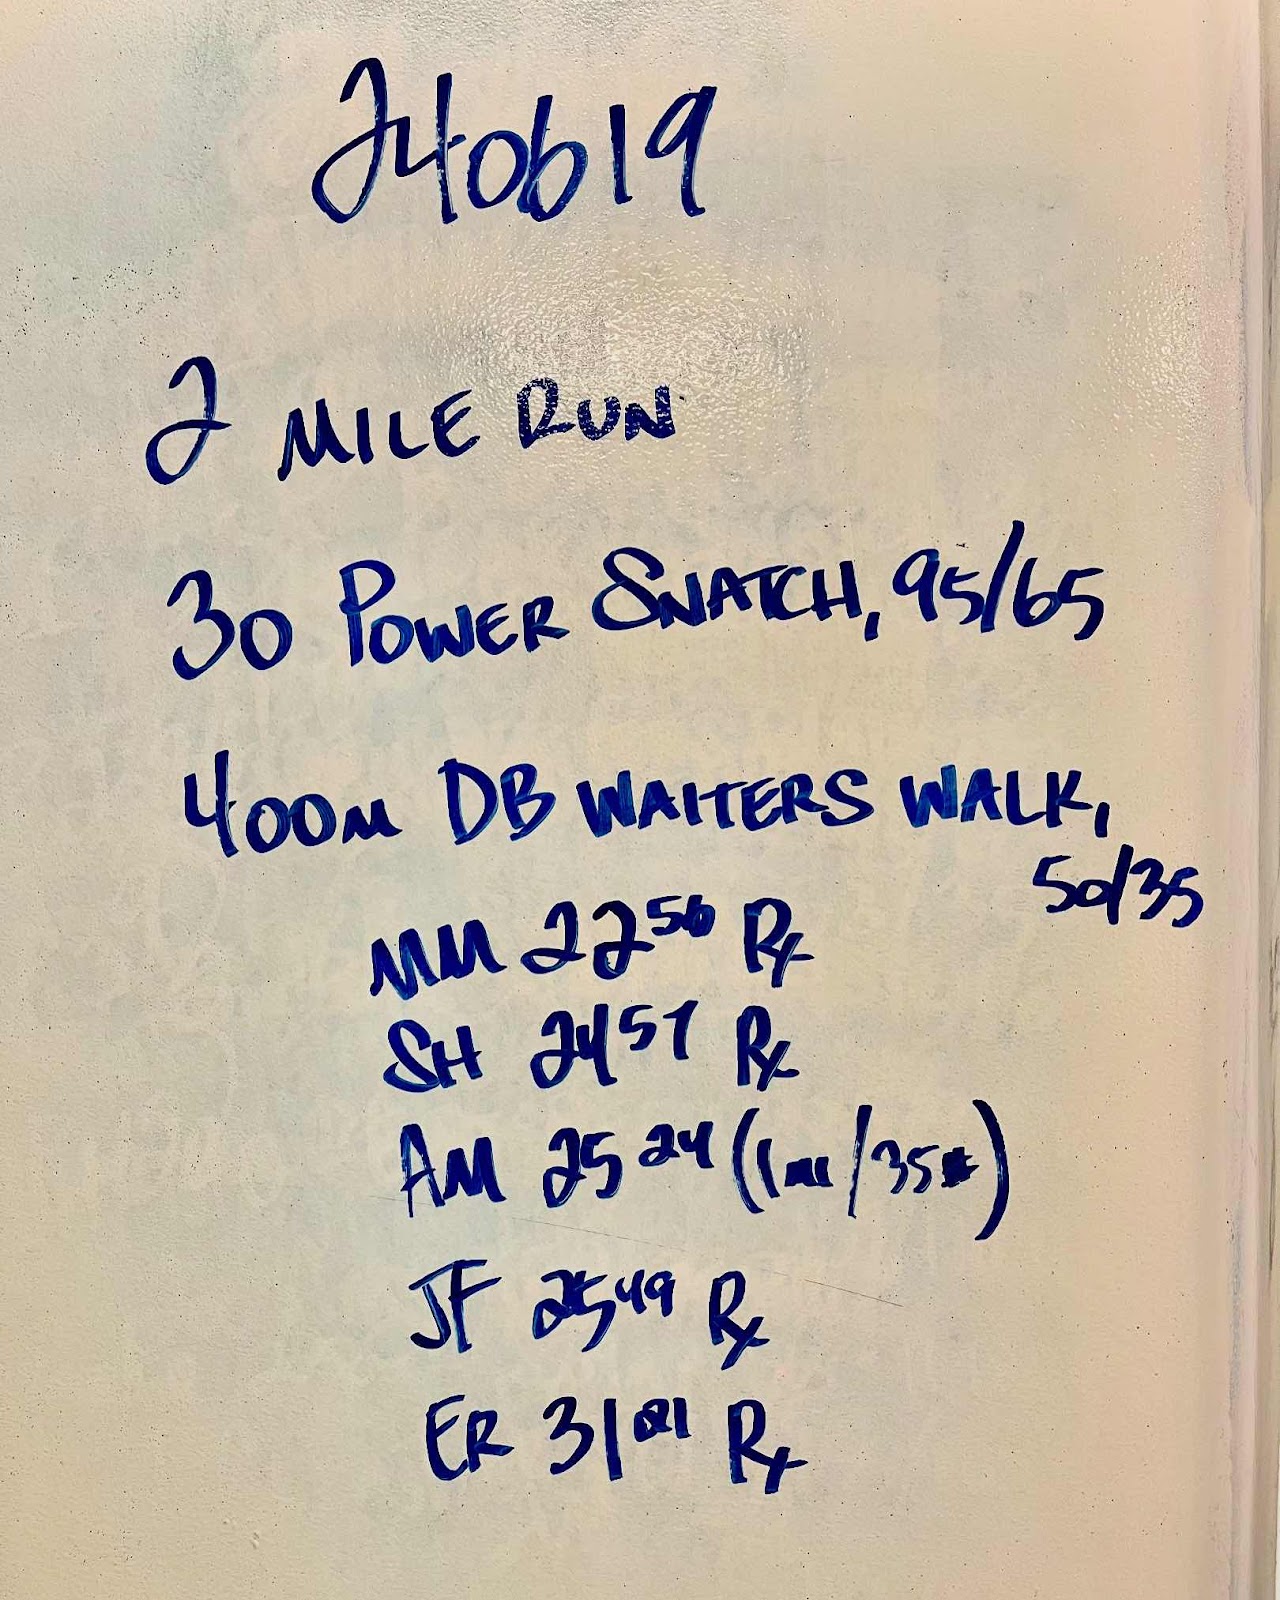 240619
2 MILE RUN
30 POWER SNATCH, 95/65
400M DB WAITERS WALK,
50/35
MM 22 56 Rx
SH 24 57 Rx
AM 25 24 (1 /35#)
JF 25 49 Rx
ER 31 Rx